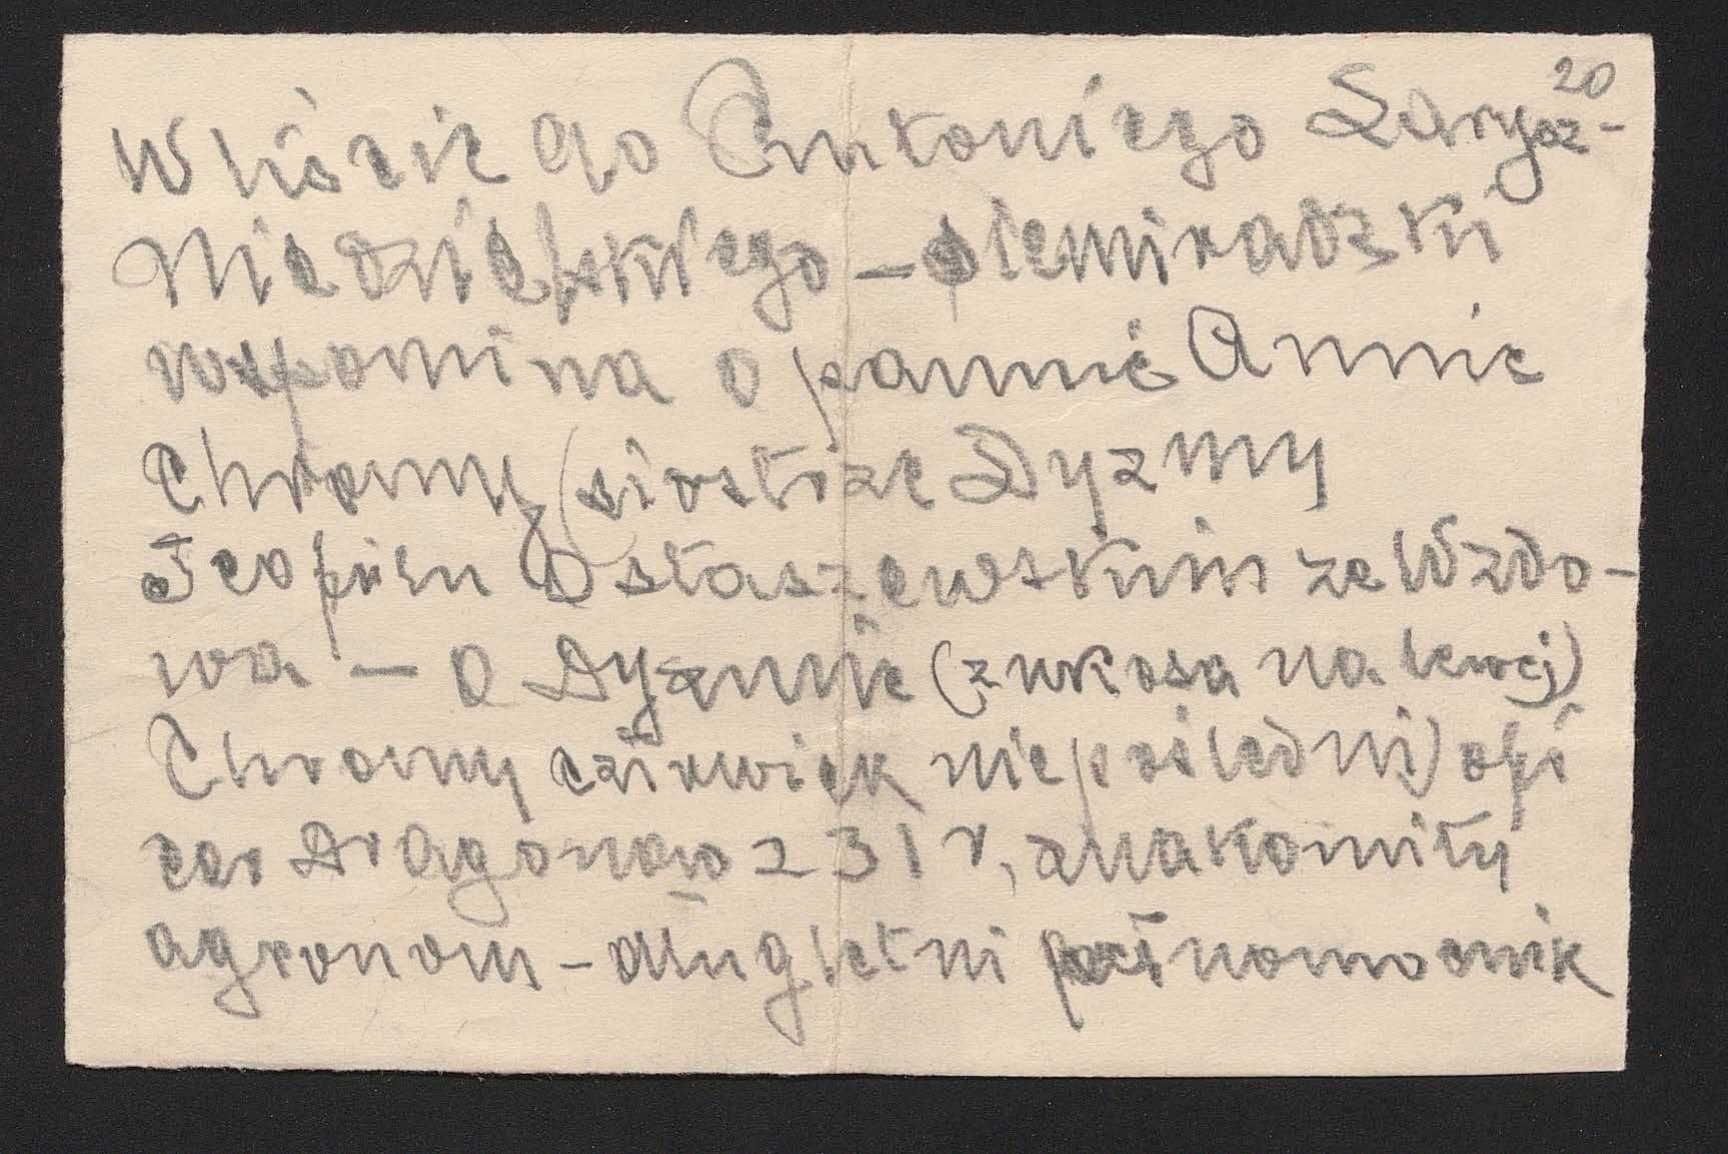 20
W liście do Antoniego Larysz-
Niedzielskiego – Siemiradzki
wspomina o pannie Annie
Chromy (siostrze Dyzmy
Teofilu Ostaszewskim ze Wzdo-
wa – o Dyzmie (z ukosa na lewej)
Chromy człowiek niepośledni) ofi
cer Dragonów z 31 r, znakomity
agronom – długletni pełnomocnik